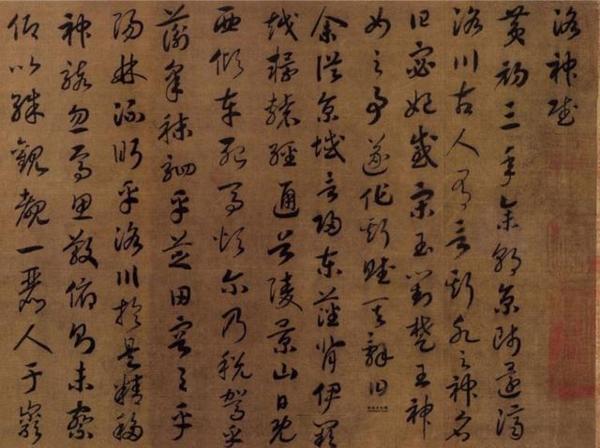 洛神賦
黄初三年余朝京師還濟
洛川古人有言斯水之神名
曰宓妃感宋玉對楚王神
女之事遂作斯賦其辭曰
余從京域言歸東藩背伊闕
越轘轅經通谷陵景山日既
西傾車殆馬煩尔乃税駕乎
蘅皋秣駟乎芝田容与乎
陽林流眄乎洛川於是精移
神駭忽焉思散俯則未察
仰以殊觀覩一麗人于巖